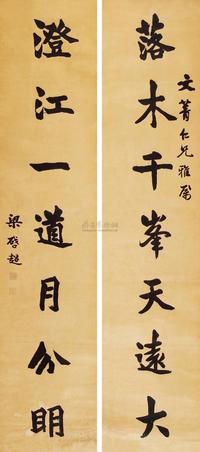 文菁仁兄雅屬
落木千峯天遠大
澄江一道月分明
梁啓超